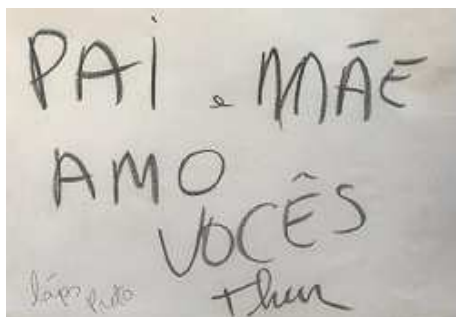 PAI e MÃE
AMO
VOCÊS
lápis preto